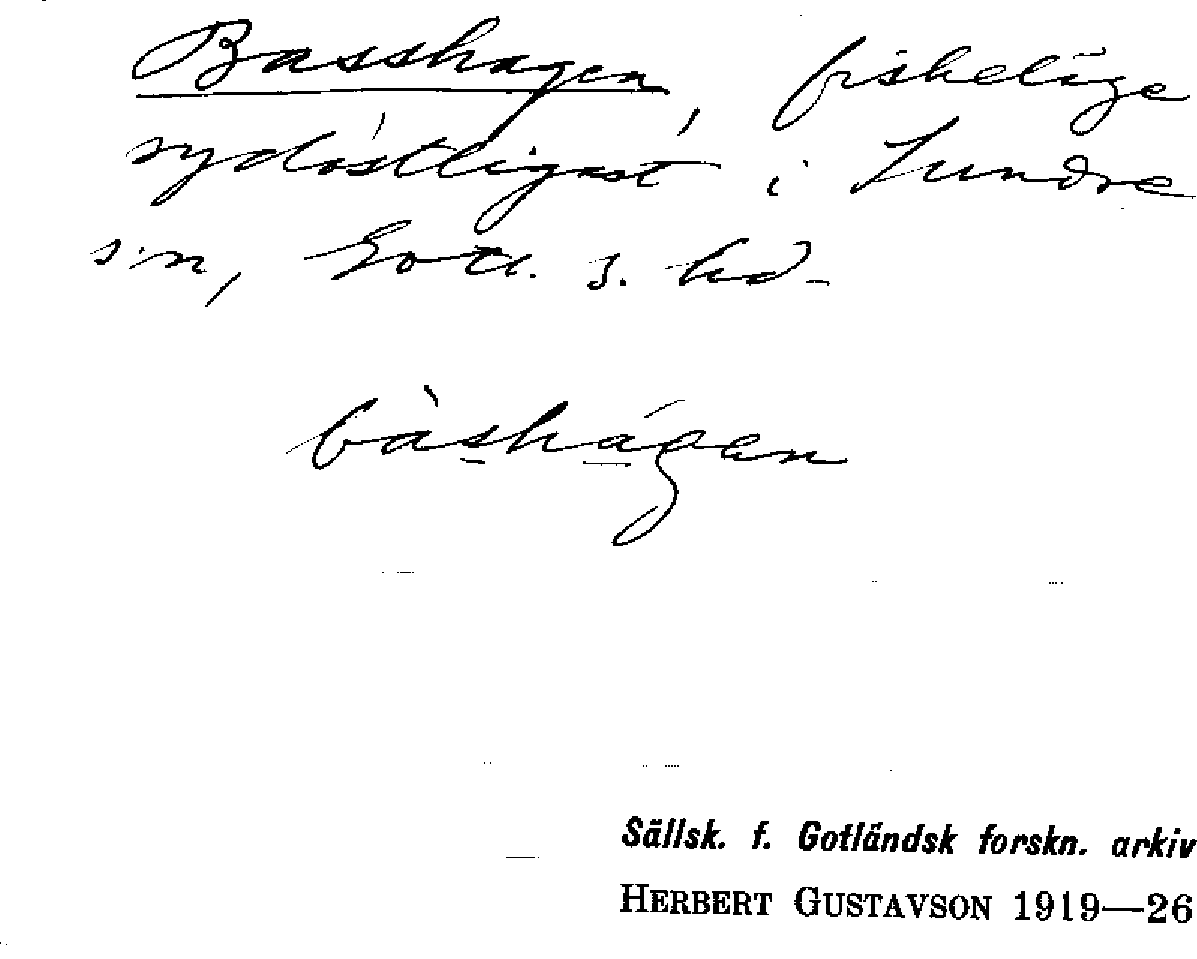 Basshagen, fiskeläge
sydöstligast i Sundre
s:n, Gotl. s. hd.
bàshágen
Sällsk. f. Gotländsk forskn. arkiv
HERBERT GUSTAVSON 1919—26